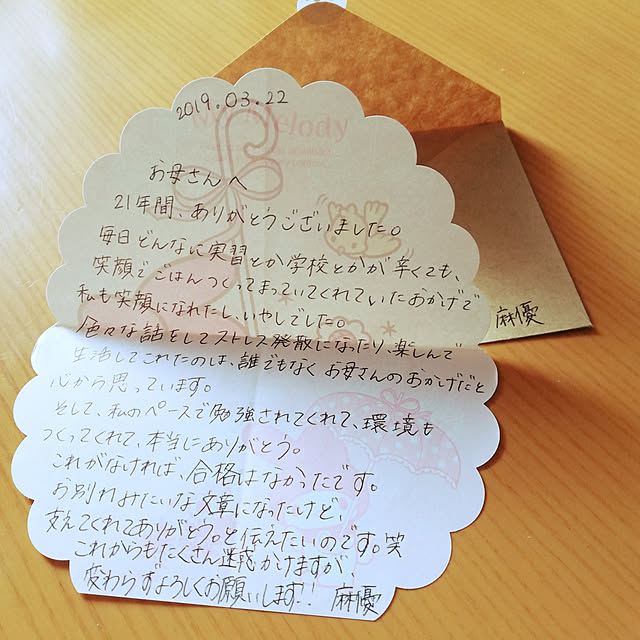 2019.03.22
My Melody
お母さんへ
21年間、ありがとうございました。
毎日どんなに実習とか学校とかが辛くても、
笑顔でごはんつくってまっていてくれていたおかげで
私も笑顔になれたし、いやしでした。
色々な話をしてストレス発散になったり、楽しんで
生活してこれたのは、誰でもなくお母さんのおかげだと
心から思っています。
そして、私のペースで勉強させてくれて、環境も
つくってくれて、本当にありがとう。
これがなければ、合格はなかったです。
お別れみたいな文章になったけど、
支えてくれてありがとう。と伝えたいのです。笑
これからもたくさん迷惑かけますが、
変わらずよろしくお願いします!! 麻優
麻優